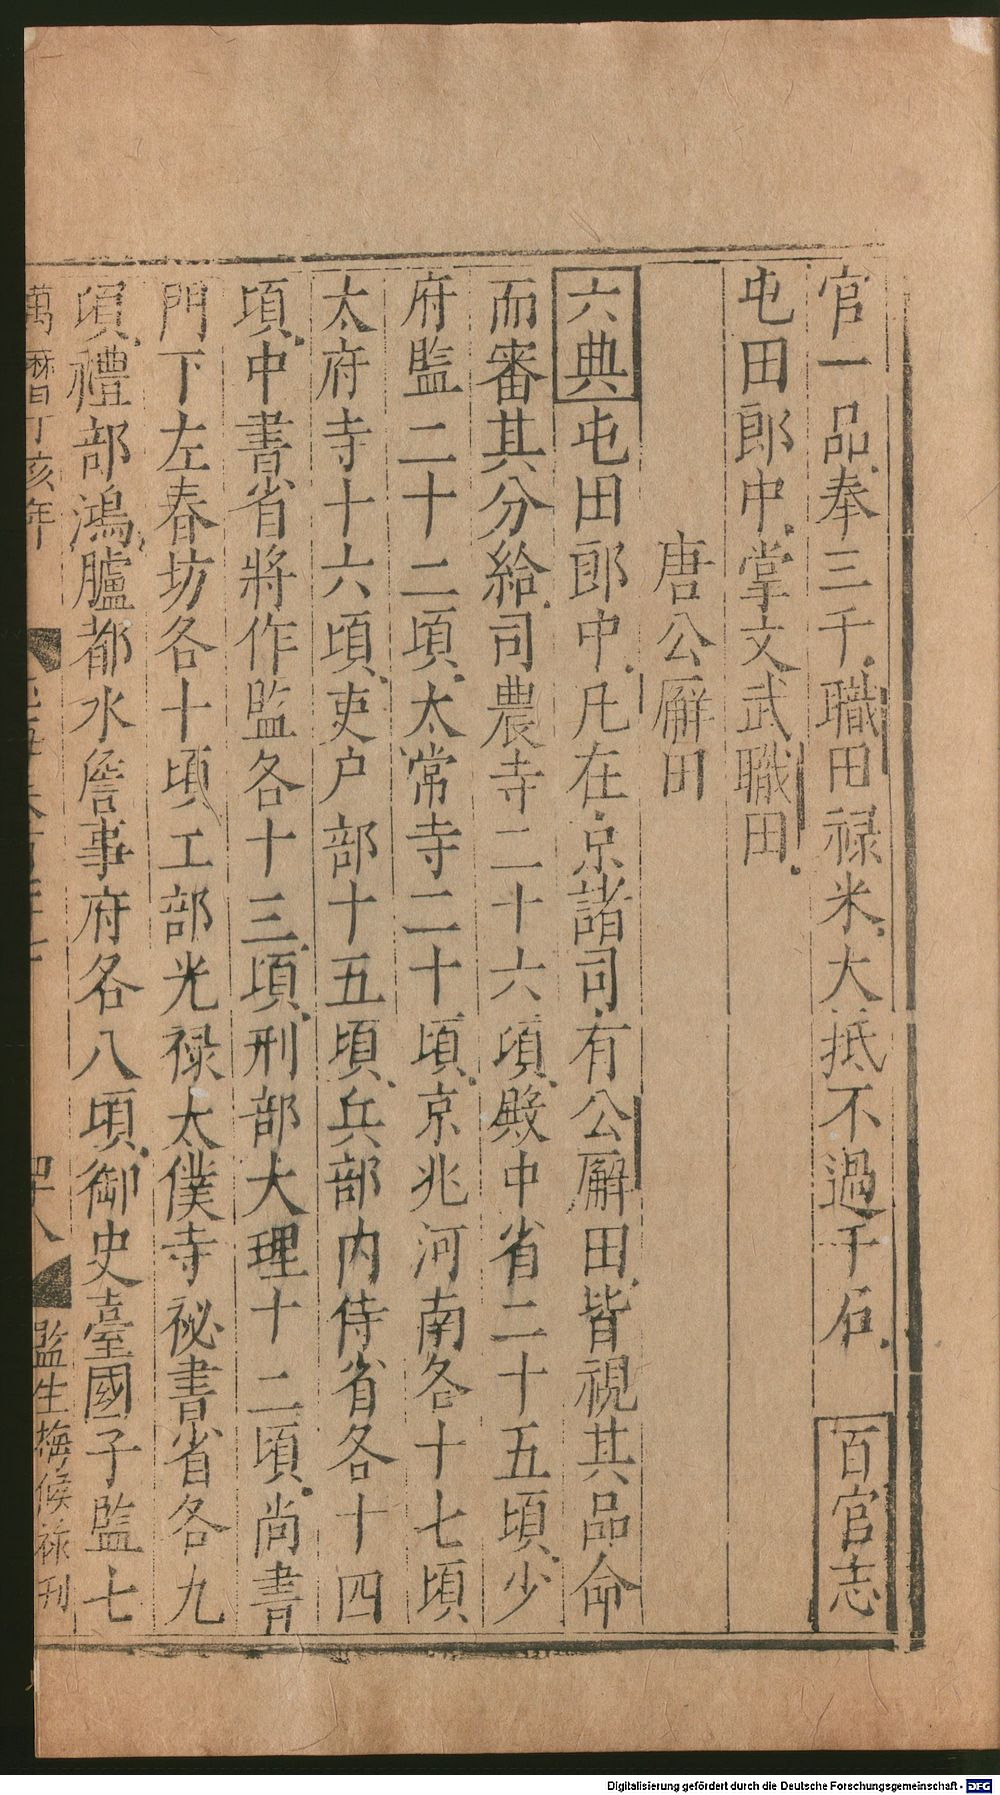 官一品奉三千職田禄米大抵不過千石 百官志
屯田郎中掌文武職田
唐公廨田
六典屯田郎中凡在京諸司有公廨田皆視其品命
而審其分給司農寺二十六頃殿中省二十五頃少
府監二十二頃太常寺二十頃京兆河南各十七頃
太府寺十六頃吏户部十五頃兵部内侍省各十四
頃中書省將作監各十三頃刑部大理十二頃尚書
門下左春坊各十頃工部光禄太僕寺祕書省各九
頃禮部鴻臚都水詹事府各八頃御史臺國子監七
萬曆丁亥年 四十八 監生梅候祿刊
Digitalisierung gefördert durch die Deutsche Forschungsgemeinschaft - DFG